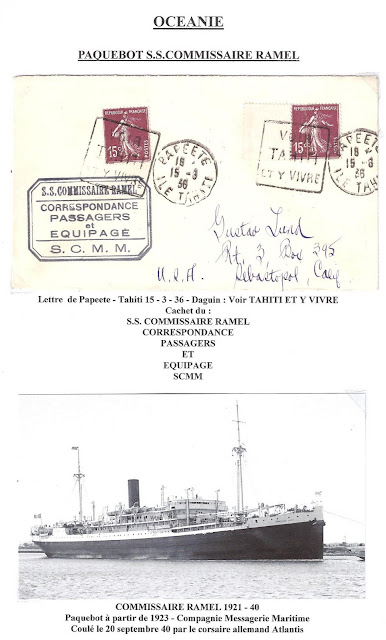 OCEANIE
PAQUEBOT S.S.COMMISSAIRE RAMEL
REPUBLIQUE FRANÇAISE
15c
POSTES
REPUBLIQUE FRANÇAISE
15c
POSTES
TAHITI
ET Y VIVRE
PAPEETE
18
15-3
36
ILE TAHITI
TAHITI
ET Y VIVRE
18
15-3
36
ILE TAHITI
S.S.COMMISSAIRE RAMEL
CORRESPONDANCE
PASSAGERS
et
EQUIPAGE
S.C.M.M.
Gustav Lund
Rt. 3, Box 395
U.S.A. Sebastopol, Calif.
Lettre de Papeete - Tahiti 15 - 3 - 36 - Daguin : Voir TAHITI ET Y VIVRE
Cachet du :
S.S. COMMISSAIRE RAMEL
CORRESPONDANCE
PASSAGERS
ET
EQUIPAGE
SCMM
COMMISSAIRE RAMEL 1921 - 40
Paquebot à partir de 1923 - Compagnie Messagerie Maritime
Coulé le 20 septembre 40 par le corsaire allemand Atlantis